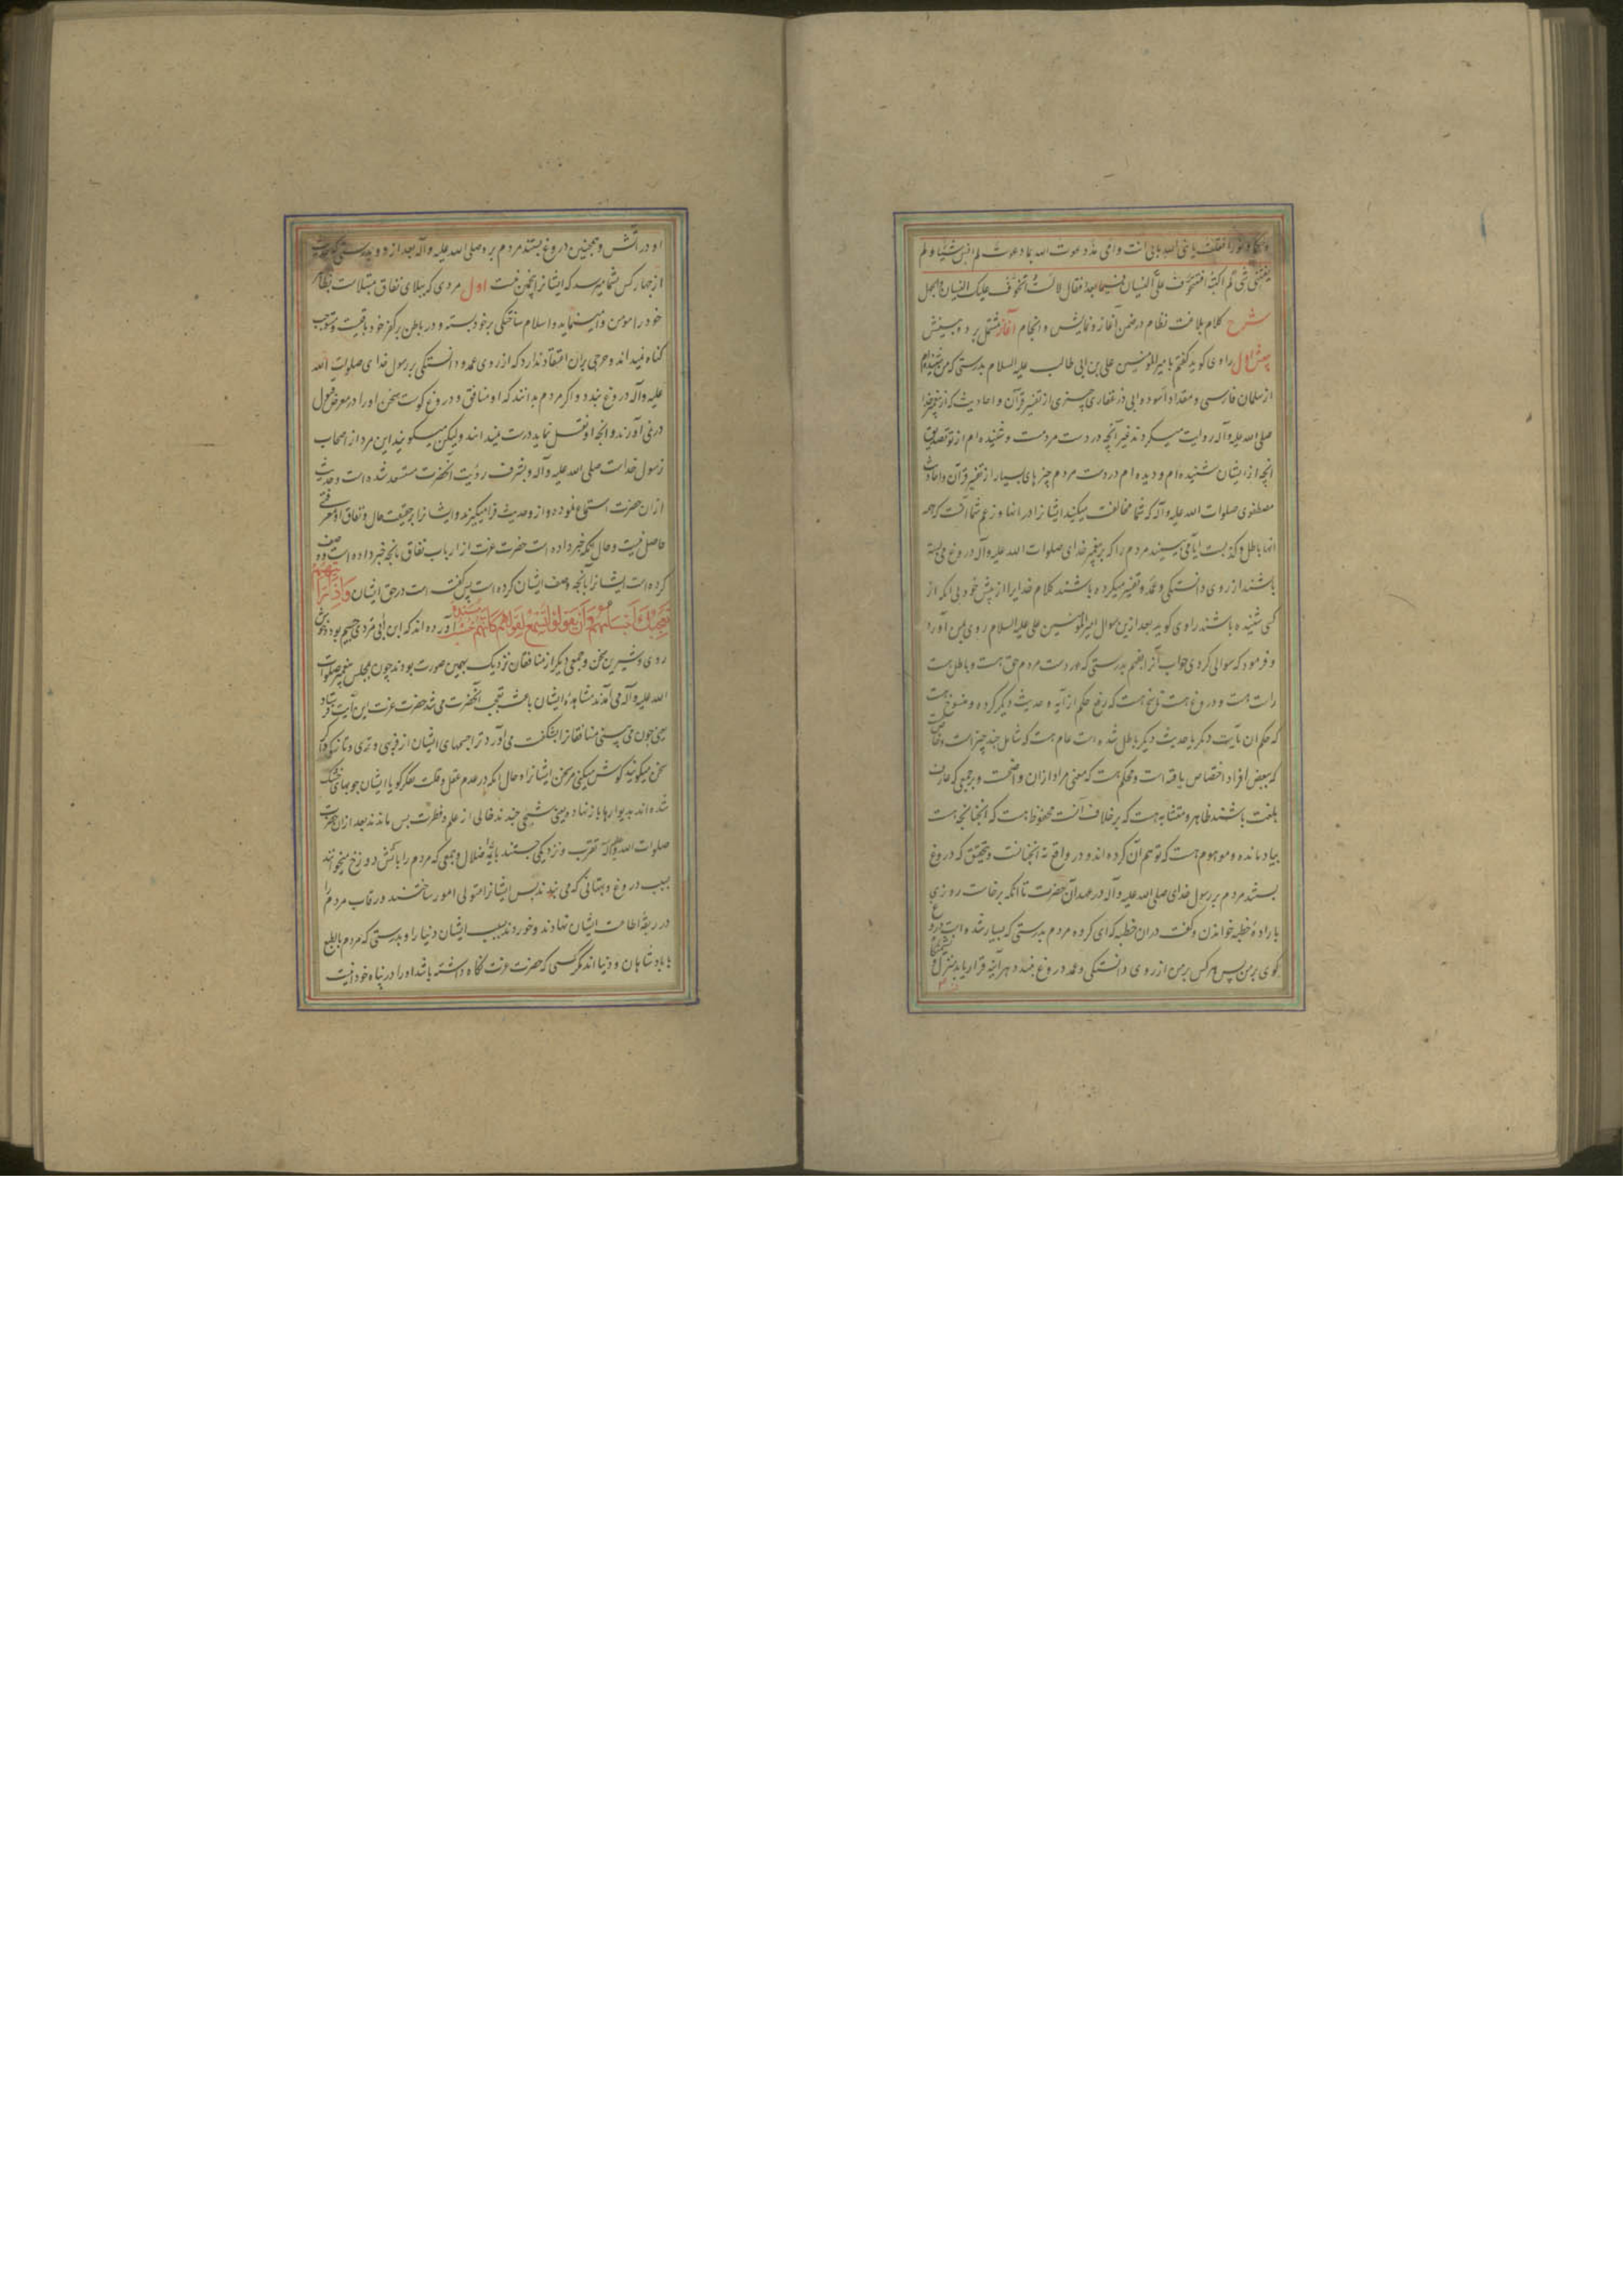 وحکما ونورا فقلت یا نبی الله بابی انت وامی مذ دعوت الله بما دعوت لم انس شیئا ولم
یفتنی شی لم اکتبه افتتخوف علی النسیان فیما بعد فقال لا لست اتخوف علیک النسیان والجهل
شرح کلام بلاغت نظام در ضمن آغاز و نمایش و انجام آغاز مشتمل بر دو بینش
بینش اول راوی کوید کفتم بامیرالمؤمنین علی بن ابی طالب علیه السلام بدرستی که من شنیده ام
از سلمان فارسی و مقداد اسود و ابی ذر غفاری چیزی از تفسیر قرآن و احادیث که از پیغمبر خدا
صلی الله علیه وآله روایت میکردند غیر آنچه در دست مردمست و شنیده ام از تو تصدیق
انچه از ایشان شنیده ام و دیده ام در دست مردم چیزهای بسیار از تفسیر قرآن و احادیث
مصطفوی صلوات الله علیه وآله که شما مخالفت میکنید ایشانرا در انها و زعم شما آنست که همه
انها باطل و کذبست ایا می بینید مردم را که بر پیغمبر خدای صلوات الله علیه وآله دروغ می بسته
باشند از روی دانستکی و عمد و تفسیر میکرده باشند کلام خدایرا از پیش خود بی انکه از
کسی شنیده باشند راوی کوید بعد ازین سوال امیرالمؤمنین علی علیه السلام روی بمن آورد
و فرمود که سوالی کردی جواب آنرا بفهم بدرستی که در دست مردم حق هست و باطل هست
راست هست و دروغ هست ناسخ هست که رفع حکم از آیه و حدیث دیکر کرده و منسوخ هست
که حکم ان بآیت دیکر یا حدیث دیکر باطل شده است عام هست که شامل چند چیز است و خاص هست
که ببعض افراد اختصاص یافته است و محکم هست که معنی مراد ازان واضحست و بر جمیعی که عارف
بلغت باشند ظاهر و متشابه هست که بر خلاف آنست محفوظ هست که انچنانچه هست
بیاد مانده و موهوم هست که توهم آن کرده اند و در واقع نه انچنانست و بتحقیق که دروغ
بستند مردم بر رسول خدای صلی الله علیه وآله در عهد آن حضرت تا انکه برخاست روزی
بارادهٔ خطبه خواندن و کفت دران خطبه که ای کروه مردم بدرستی که بسیار شده است دروغ
کوی بر من پس هر کس بر من از روی دانستکی و عمد دروغ بندد هر آینه قرار یابد منزل و
او در آتش و همچنین دروغ بستند مردم برو صلی الله علیه وآله بعد ازو و بدرستی که حدیث
از چهار کس بشما میرسد که ایشانرا پنجمین نیست اول مردی که ببلای نفاق مبتلاست بظاهر
خود را مومن وا مینماید و اسلام ساختکی بر خود بسته و در باطن بر کفر خود باقیست و
کناه نمیداند و حرجی بران اعتقاد ندارد که از روی عمد و دانستکی بر رسول خدای صلوات الله
علیه وآله دروغ بندد و اکر مردم بدانند که او منافق و دروغ کوست سخن او را در معرض قبول
در نمی آورند و انچه او نقل نماید درست نمیدانند ولیکن میکویند این مرد از اصحاب
رسول خداست صلی الله علیه وآله و بشرف رؤیت انحضرت مستعد شده است و حدیث
ازان حضرت استماع نموده و ازو حدیث فرا میکیرند و ایشانرا بر حقیقت حال و نفاق او معرفتی
حاصل نیست و حال انکه خبر داده است حضرت عزت از ارباب نفاق بانچه خبر داده است و وصف
کرده است ایشانرا بانچه وصف ایشان کرده است پس کفته است در حق ایشان وَاِذا رَاَیتَهُم
تُعجِبُکَ اَجسامُهُم وَاِن یَقُولُوا تَسمَع لِقَولِهِم کَاَنَّهُم خُشُبٌ مُسَنَّدَة آورده اند که ابن ابی مردی جسیم بود و خوش
روی و شیرین سخن و جمعی دیکر از منافقان نزدیک بهمین صورت بودند چون بمجلس پیغمبر صلوات
الله علیه وآله می آمدند مشاهدهٔ ایشان باعث تعجب آنحضرت می شد حضرت عزت این آیت فرستاد
یعنی چون می بینی منافقانرا بشکفت می آورد ترا جسمهای ایشان از فربهی و تری و تازکی و اکر
سخن میکویند کوش میکنی مر سخن ایشانرا و حال انکه در عدم عقل و قلت فکر کویا ایشان چوبهای خشک
شده اند بدیوارها باز نهاده یعنی شبحی چند خالی از علم و فطرت پس ماندند بعد ازان حضرت
صلوات الله علیه وآله تقرب و نزدیکی جستند بائمهٔ ضلال و جمعی که مردم را بآتش دوزخ میخوانند
بسبب دروغ و بهتانی که می بندند پس ایشانرا متولی امور ساختند و رقاب مردم را
در ربقهٔ اطاعت ایشان نهادند و خوردند بسبب ایشان دنیا را و بدرستی که مردم بالطبع
با پادشاهان و دنیا اند مکر کسی که حضرت عزت نکاه داشته باشد او را در پناه خود اینست